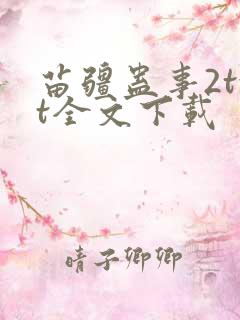 苗疆蛊事2t
t全文下载
晴子卿卿